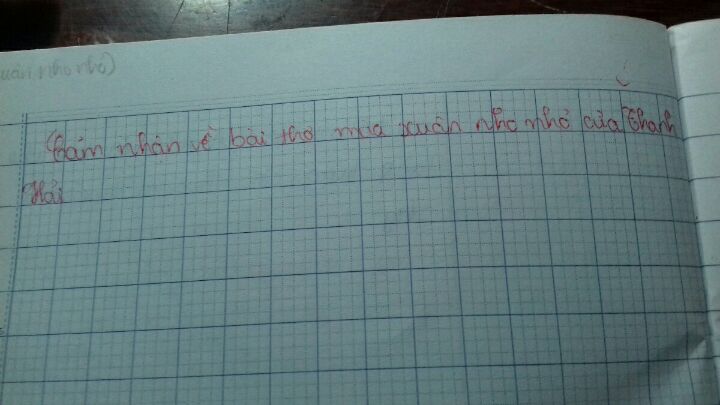 uân nho nhỏ)
Cảm nhận về bài thơ mua xuân nho nhỏ của Thanh
Hải